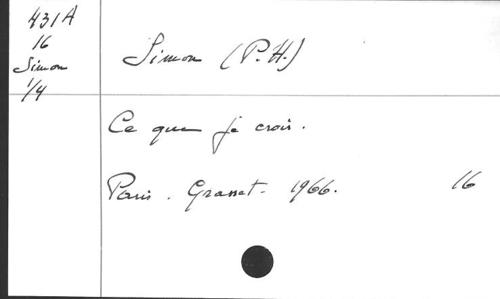 431A
16
Simon
1/4
Simon (P.H.)
Ce que je crois.
Paris. Grasset. 1966. 16